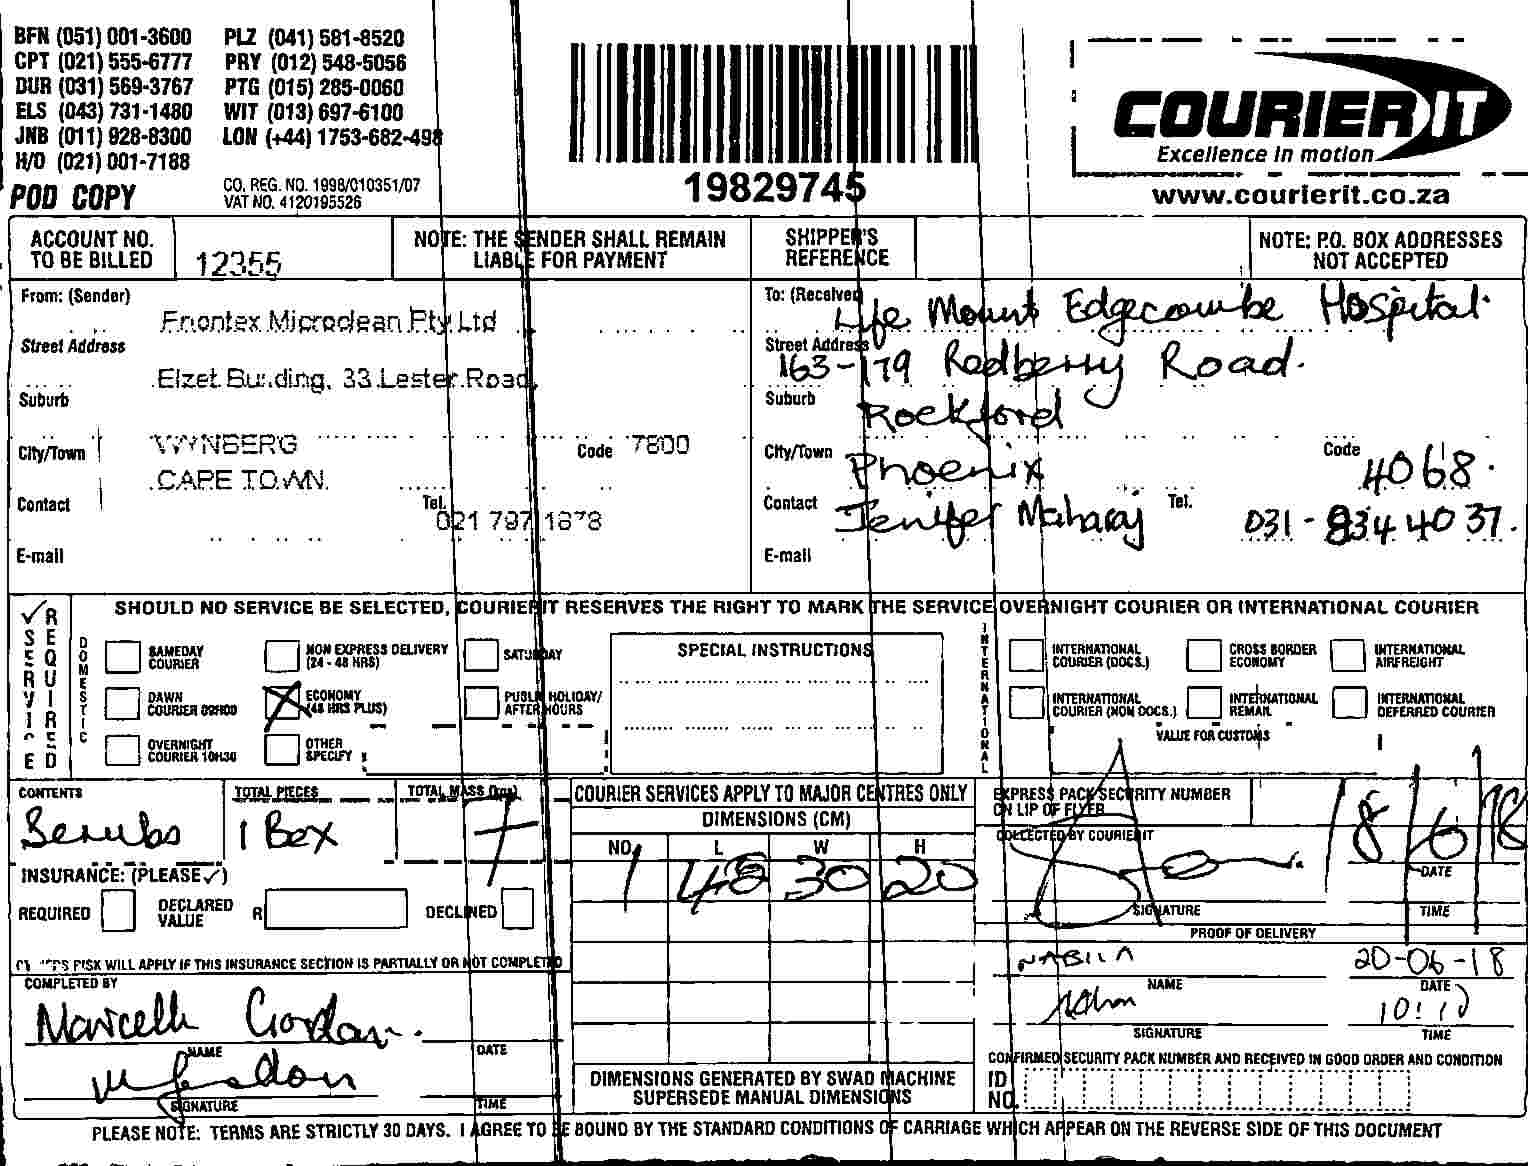 BFN (051) 001-3600 PLZ (041) 581-8520
CPT (021) 555-6777 PRY (012) 548-5056
DUR (031) 569-3767 PTG (015) 285-0060
ELS (043) 731-1480 WIT (013) 697-6100
JNB (011) 928-8300 LON (+44) 1753-682-498
H/O (021) 001-7188
POD COPY
CO. REG. NO. 1998/010351/07
VAT NO. 4120195526
19829745
COURIER IT
Excellence in motion
www.courierit.co.za
ACCOUNT NO. TO BE BILLED
12355
NOTE: THE SENDER SHALL REMAIN LIABLE FOR PAYMENT
SHIPPER'S REFERENCE
NOTE: P.O. BOX ADDRESSES NOT ACCEPTED
From: (Sender)
Enontex Microclean Pty Ltd
Street Address
Elzet Building, 33 Lester Road,
Suburb
WYNBERG
City/Town
CAPE TOWN
Code 7800
Contact
Tel. 021 797 1878
E-mail
To: (Receiver)
Life Mount Edgecombe Hospital.
Street Address
163-179 Redberry Road.
Suburb
Rockford
City/Town
Phoenix
Code 4068.
Contact
Jenifer Maharaj
Tel. 031-8344037.
E-mail
SERVICE REQUIRED
SHOULD NO SERVICE BE SELECTED, COURIERIT RESERVES THE RIGHT TO MARK THE SERVICE OVERNIGHT COURIER OR INTERNATIONAL COURIER
DOMESTIC
SAMEDAY COURIER
NON EXPRESS DELIVERY (24 - 48 HRS)
SATURDAY
DAWN COURIER 09H00
ECONOMY (48 HRS PLUS)
PUBLIC HOLIDAY/ AFTER HOURS
OVERNIGHT COURIER 10H30
OTHER SPECIFY
SPECIAL INSTRUCTIONS
INTERNATIONAL
INTERNATIONAL COURIER (DOCS.)
CROSS BORDER ECONOMY
INTERNATIONAL AIRFREIGHT
INTERNATIONAL COURIER (NON DOCS.)
INTERNATIONAL REMAIL
INTERNATIONAL DEFERRED COURIER
VALUE FOR CUSTOMS
CONTENTS
Scrubs
TOTAL PIECES
1 Box
TOTAL MASS (kgs)
7
INSURANCE: (PLEASE ✓)
REQUIRED
DECLARED VALUE R
DECLINED
RISK WILL APPLY IF THIS INSURANCE SECTION IS PARTIALLY OR NOT COMPLETED
COMPLETED BY
Maricelle Gordan.
NAME
DATE
SIGNATURE
TIME
COURIER SERVICES APPLY TO MAJOR CENTRES ONLY
DIMENSIONS (CM)
NO. L W H
1 48 30 20
DIMENSIONS GENERATED BY SWAD MACHINE SUPERSEDE MANUAL DIMENSIONS
EXPRESS PACK SECURITY NUMBER ON LIP OF FLYER
COLLECTED BY COURIERIT
18/6/18
DATE
SIGNATURE
TIME
PROOF OF DELIVERY
NABILA
20-06-18
NAME
DATE
10:10
SIGNATURE
TIME
CONFIRMED SECURITY PACK NUMBER AND RECEIVED IN GOOD ORDER AND CONDITION
ID NO.
PLEASE NOTE: TERMS ARE STRICTLY 30 DAYS. I AGREE TO BE BOUND BY THE STANDARD CONDITIONS OF CARRIAGE WHICH APPEAR ON THE REVERSE SIDE OF THIS DOCUMENT